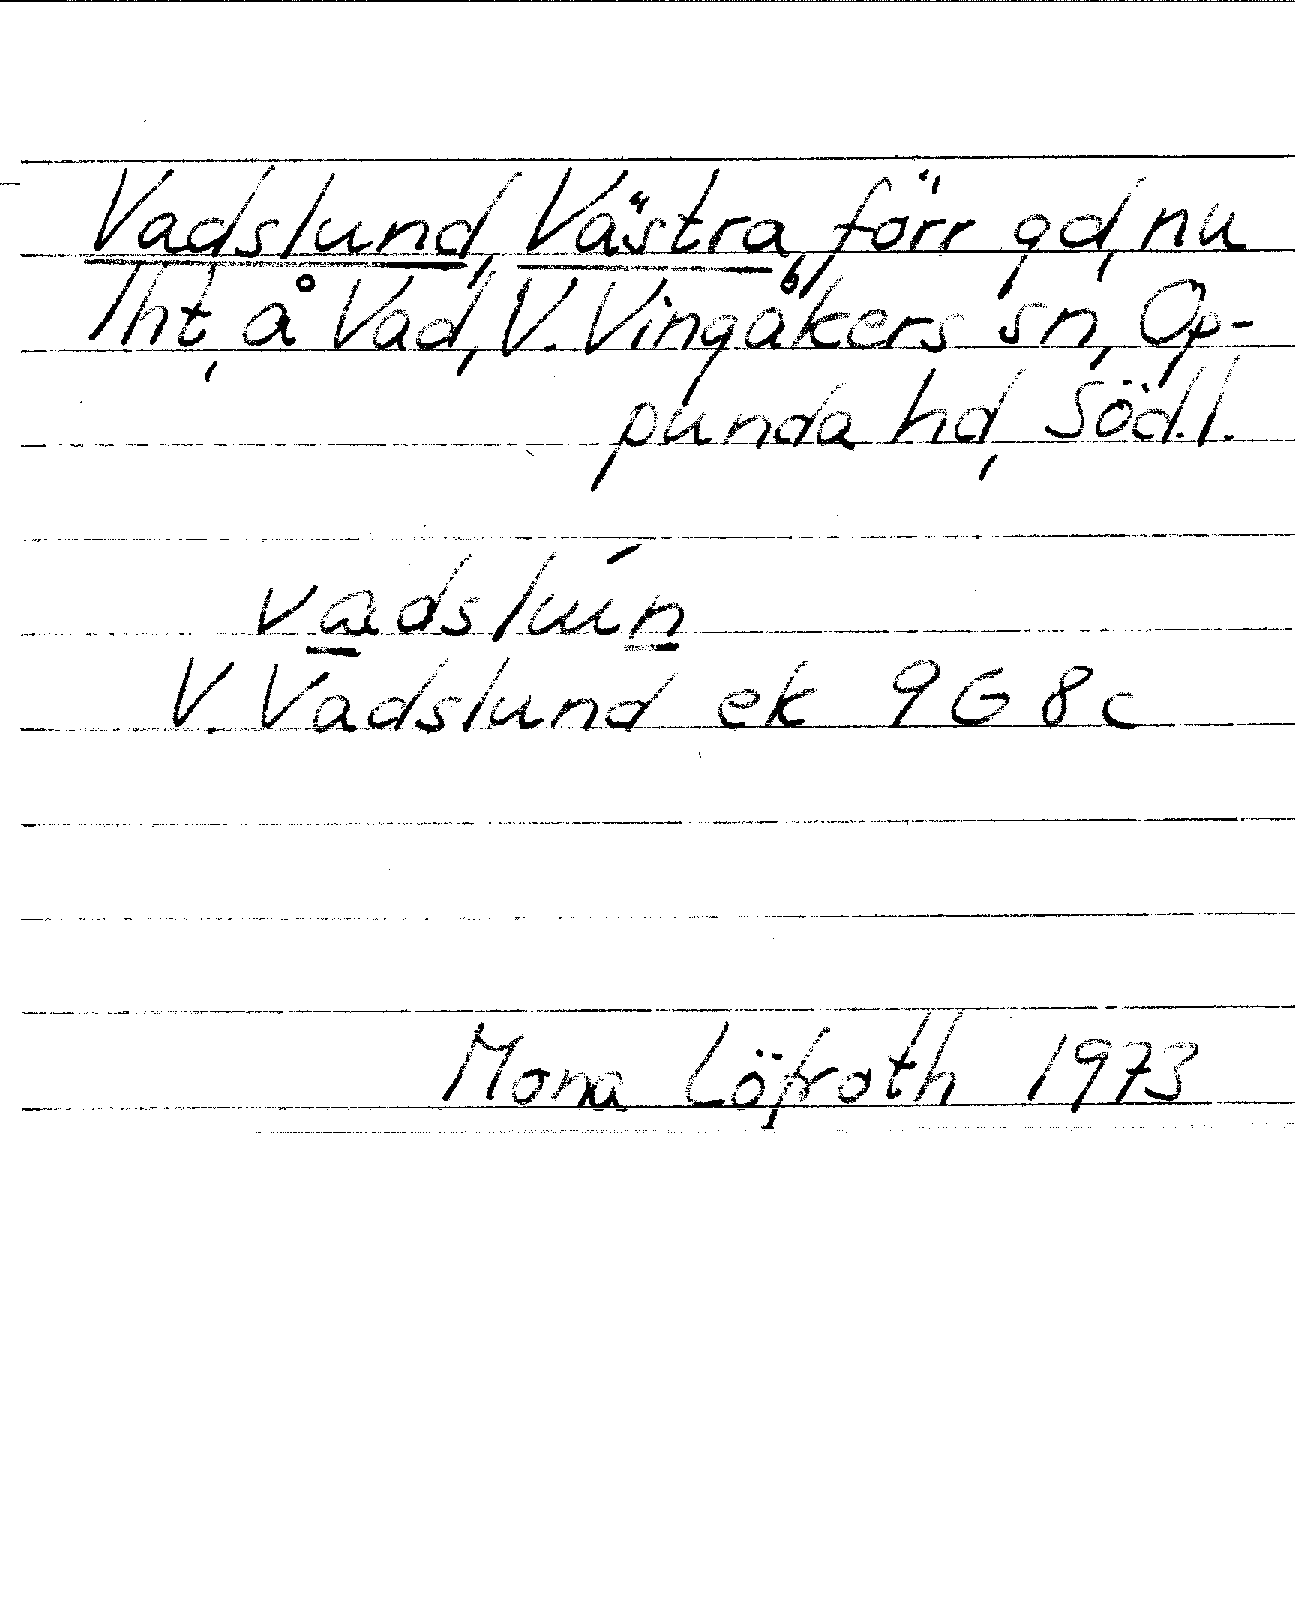 Vadslund, Västra, förr gd, nu
lht, å Vad, V. Vingåkers sn, Op-
punda hd, Södl.
vadslun
V. Vadslund ek 9G8c
Mona Löfroth 1973